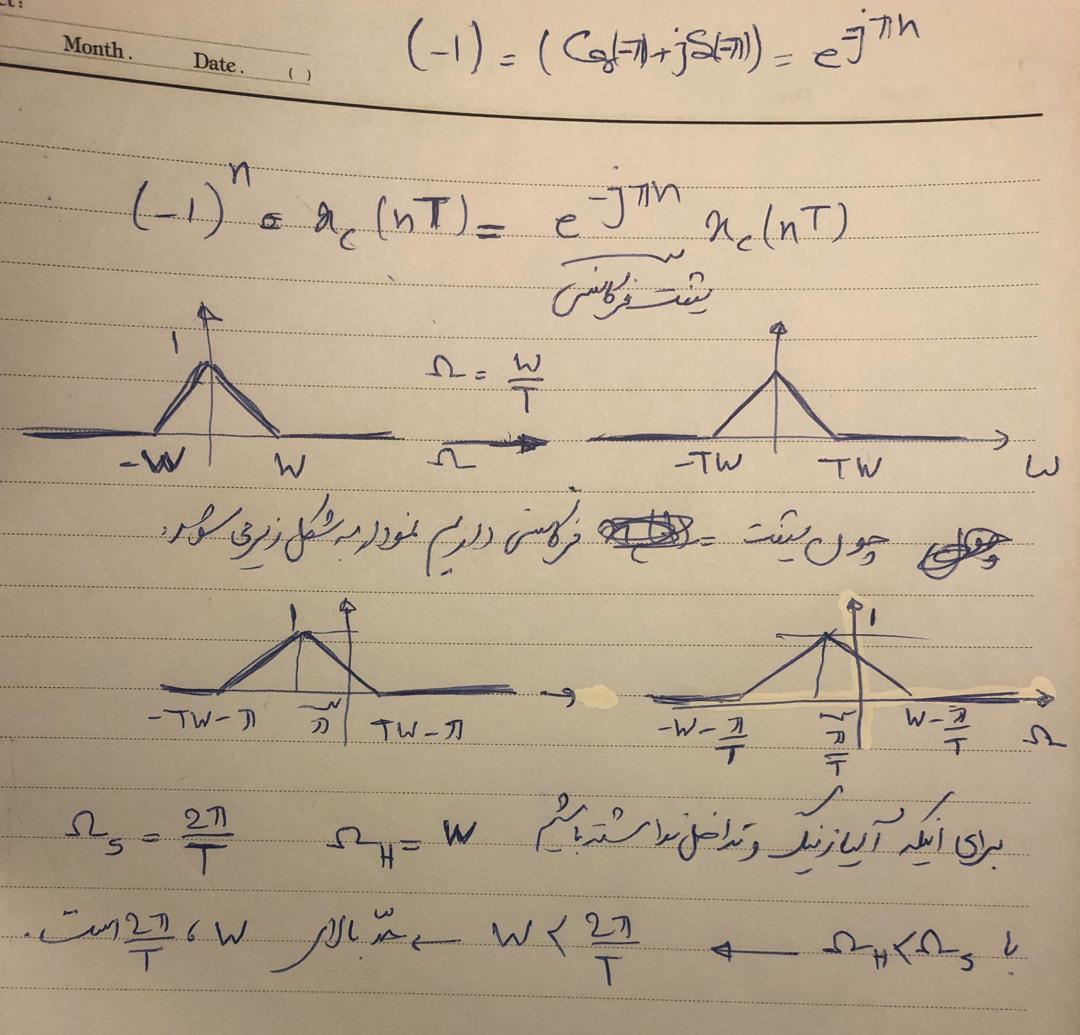 Month. Date. ( )
(-1) = (Cos(-π)+jS(-π)) = e^{-jπn}
(-1)^n = x_c(nT) = e^{-jπn} x_c(nT)
شیفت فرکانسی
1
Ω = W/T
-W W Ω -TW TW ω
چون شیفت فرکانسی داریم نمودار به شکل زیر می شود.
1 1
-TW-π -π TW-π -W-π/T -π/T W-π/T Ω
برای اینکه آلیازینگ و تداخل نداشته باشیم Ω_H = W Ω_s = 2π/T
با Ω_H < Ω_s ← W < 2π/T ← حدّ بالای W ، 2π/T است.